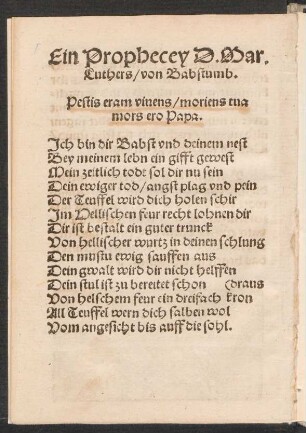 Ein Prophecey D. Mar.
Luthers/von Babstumb.
Pestis eram viuens/moriens tua
mors ero Papa.
Ich bin dir Babst vnd deinem nest
Bey meinem lebn ein gifft gewest
Mein zeitlich tode sol dir nu sein
Dein ewiger tod/angst plag vnd pein
Der Teuffel wird dich holen schir
Im Hellischen feur recht lohnen dir
Dir ist bestalt ein guter trunck
Von hellischer wurtz in deinen schlung
Den mustu ewig sauffen aus
Dein gwalt wird dir nicht helffen
Dein stul ist zu bereitet schon (draus
Von helschem feur ein dreifach kron
All Teuffel wern dich salben wol
Vom angesicht bis auff die sohl.